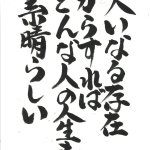 大いなる存在
からすれば
どんな人の人生も
素晴らしい